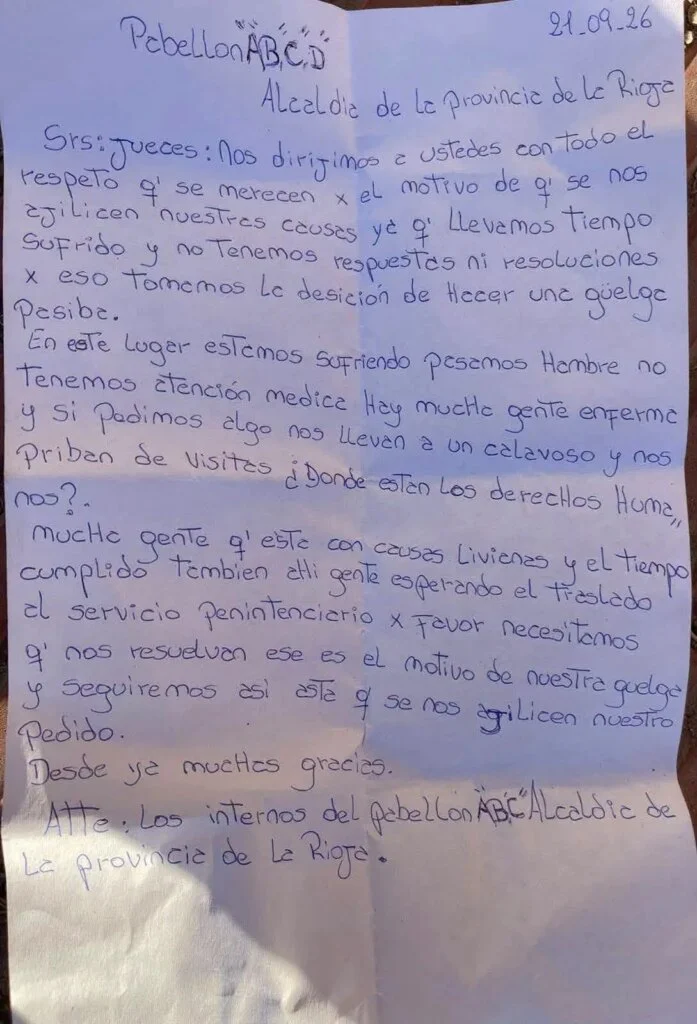 21-09-26
Pabellon "A", "B", "C", "D"
Alcaldia de la provincia de la Rioja
Srs: Jueces: Nos dirijimos a ustedes con todo el
respeto q' se merecen x el motivo de q' se nos
ajilicen nuestras causas ya q' llevamos tiempo
sufrido y no tenemos respuestas ni resoluciones
x eso tomamos la desición de Hacer una güelga
pasiba.
En este lugar estamos sufriendo pasamos Hambre no
tenemos atención medica Hay mucha gente enferma
y si padimos algo nos llevan a un calavoso y nos
priban de visitas ¿Donde estan los derechos Huma,,
nos?.
mucha gente q' esta con causas livianas y el tiempo
cumplido tambien ahi gente esperando el traslado
al servicio penintenciario x favor necesitamos
q' nos resuelvan ese es el motivo de nuestra guelga
y seguiremos asi asta q se nos agilicen nuestro
pedido.
Desde ya muchas gracias.
Atte: Los internos del pabellon "A"B"C" Alcaldia de
La provincia de la Rioja.